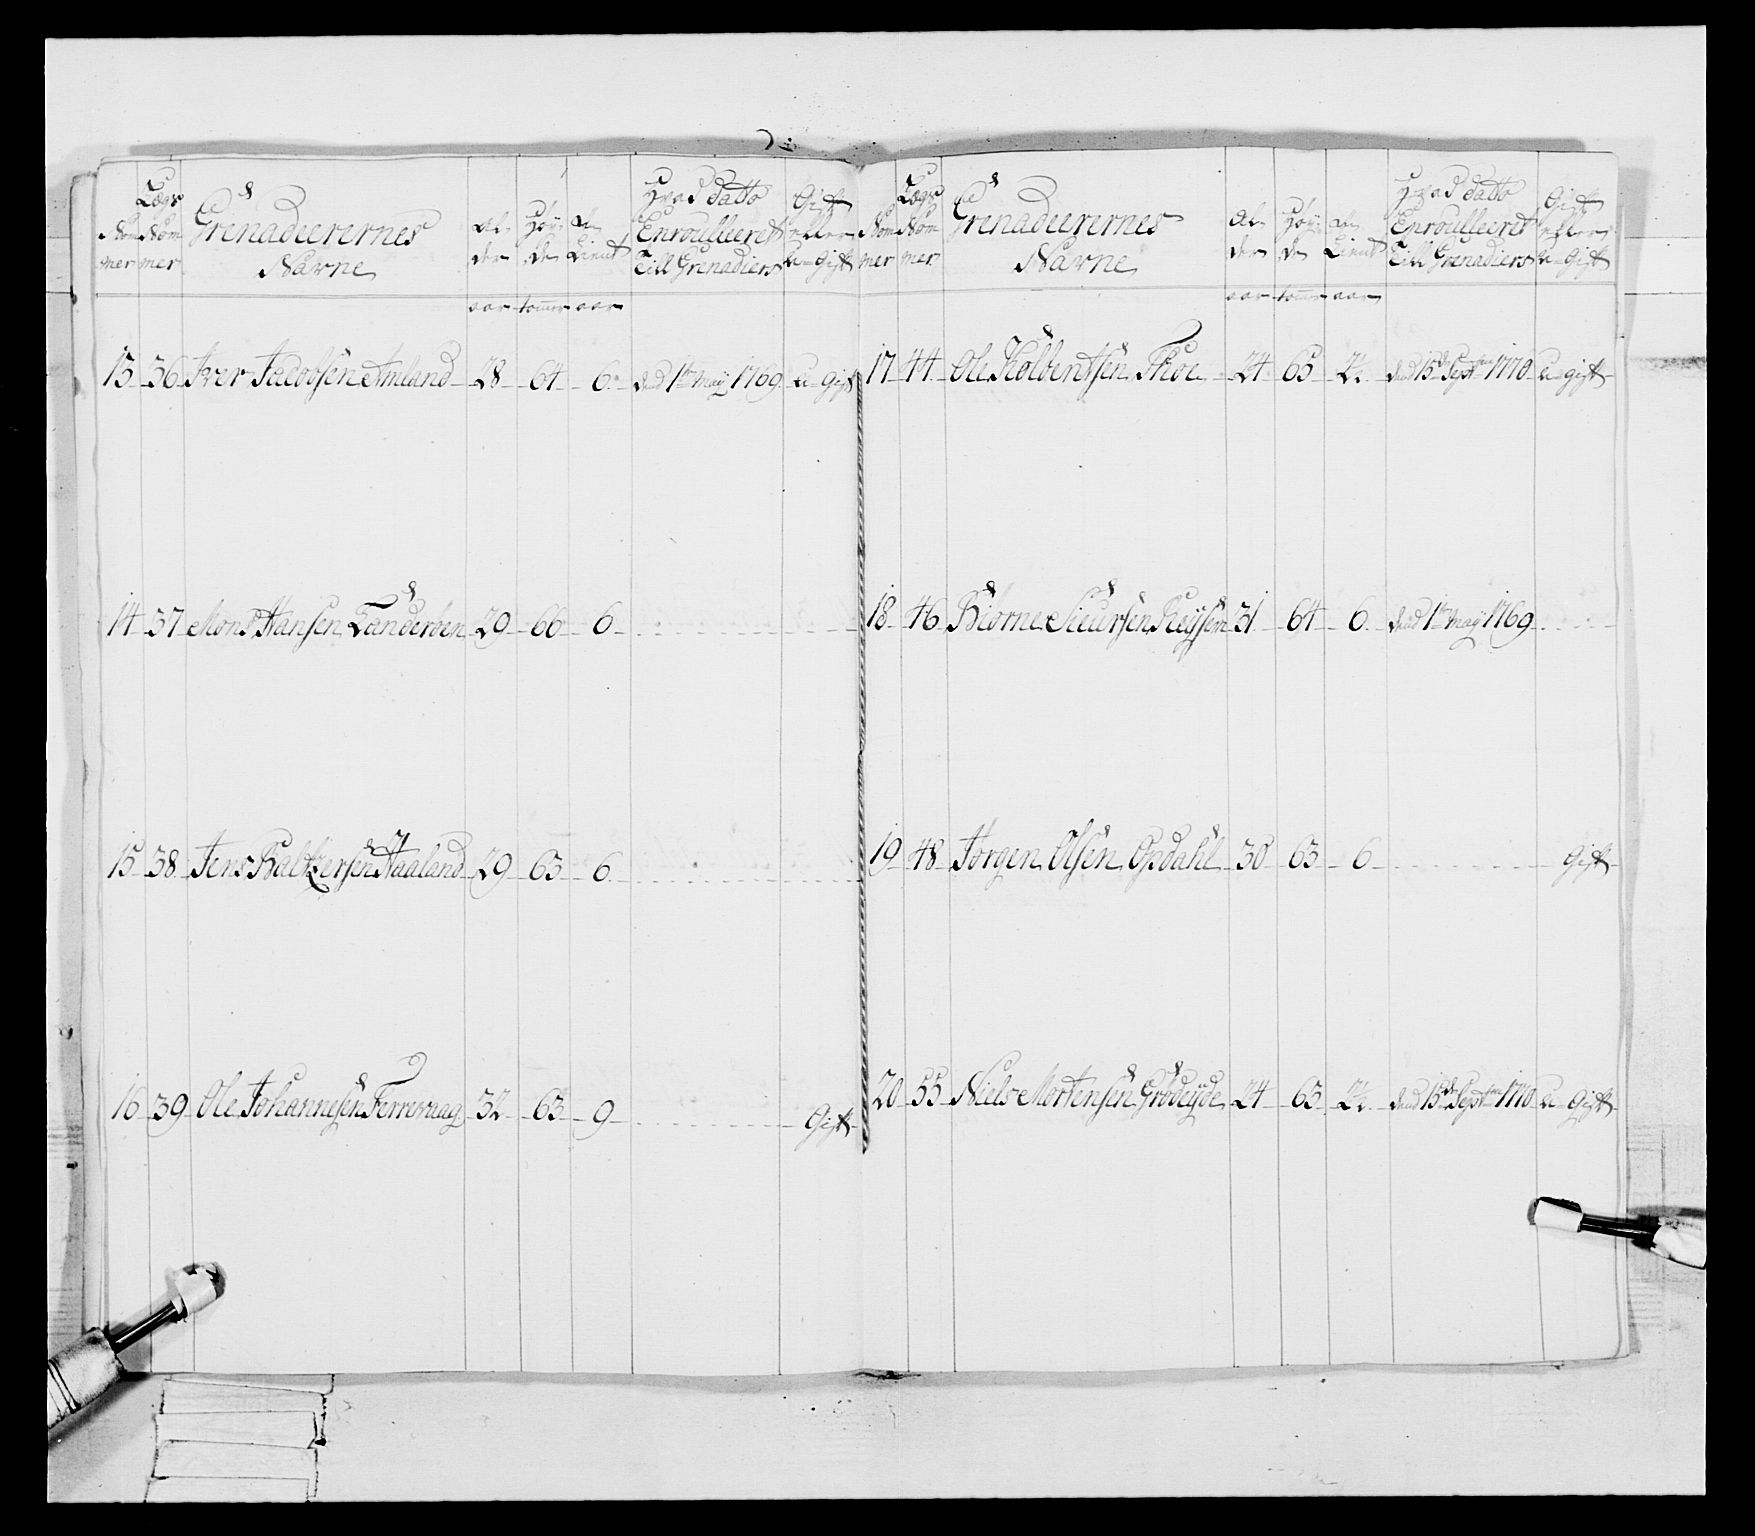 Nom
mer
Lægs
Nom
mer
Grenadeerernes
Navne
Al-
der
Høy-
de
Tient
Hvad dato
Enroulleeret
Till Grenadiers
Gift
eller
u=Gift
aar tommer aar
13 36 Iver Jacobsen Amland 28 64 6 dend 1te May 1769 u=Gift
14 37 Mons Hansen 29 66 6
15 38 Jens Baltzersen Haaland 29 63 6
16 39 Ole Johannesen Ferrevaag 32 63 9 Gift
Nom
mer
Lægs
Nom
mer
Grenadeerernes
Navne
Al-
der
Høy-
de
Tient
Hvad dato
Enroulleeret
Till Grenadiers
Gift
eller
u=Gift
aar tommer aar
17 44 Ole Thoe 24 65 2½ dend 15de Septem 1770 u=gift
18 46 Biørne Sieursen Røysen 31 64 6 dend 1te May 1769
19 48 Jørgen Olsen Opdahl 30 63 6 Gift
20 55 Niels Mortensen Grødeyde 24 63 2½ dend 15de Septem 1770 u=Gift